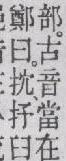 部。古音當在
鄭曰。抗扜